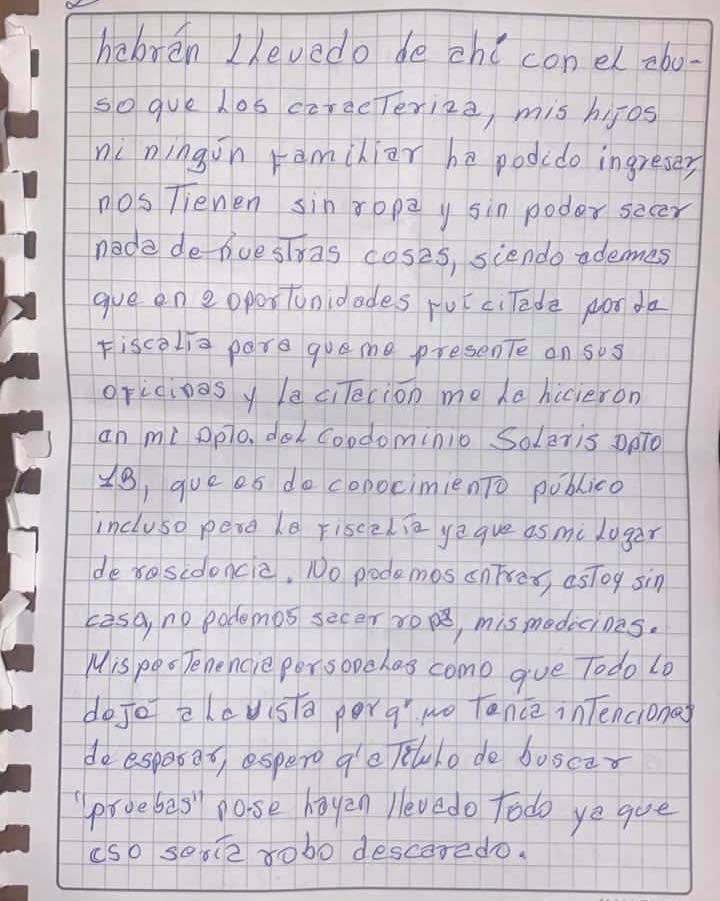 habrán llevado de ahí con el abu-
so que los caracteriza, mis hijos
ni ningún familiar ha podido ingresar,
nos tienen sin ropa y sin poder sacar
nada de nuestras cosas, siendo ademas
que en 2 oportunidades fui citada por la
Fiscalía para que me presente en sus
oficinas y la citación me la hicieron
en mi Dpto. del Condominio Solaris Dpto
1B, que es de conocimiento público
incluso para la Fiscalía ya que es mi lugar
de residencia. No podemos entrar, estoy sin
casa, no podemos sacar ropa, mis medicinas.
Mis pertenencia personales como que todo lo
dejé a la vista porq' no tenía intenciones
de esperar, espero q' a título de buscar
"pruebas" no se hayan llevado todo ya que
eso sería robo descarado.